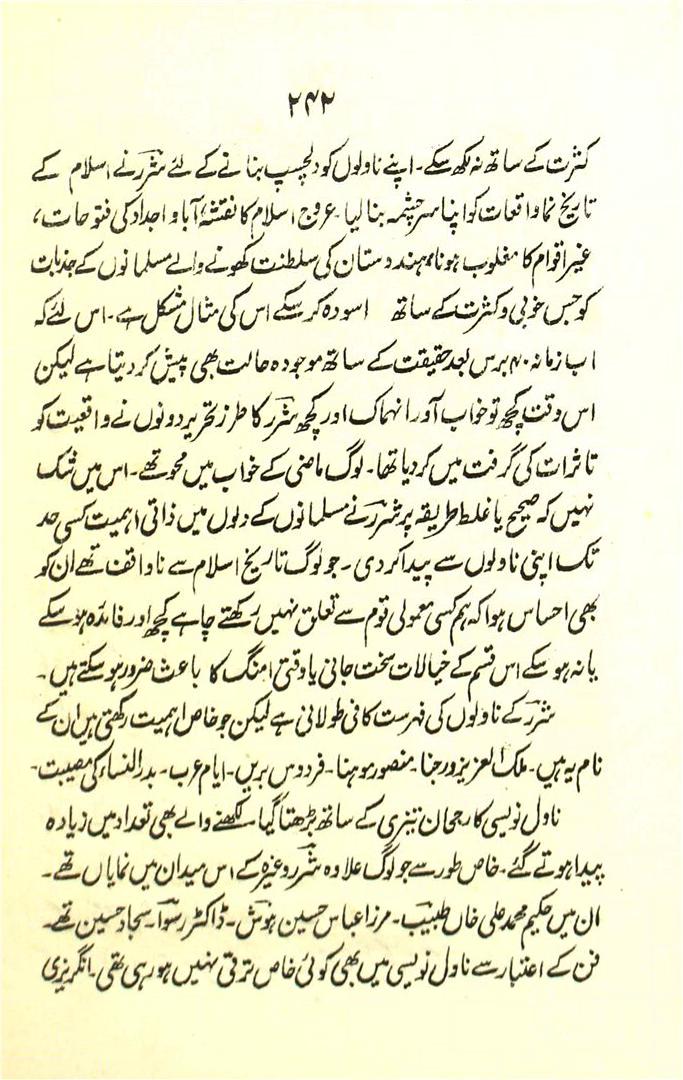 ۲۴۲
کثرت کے ساتھ نہ لکھ سکے۔ اپنے ناولوں کو دلچسپ بنانے کے لئے شررؔ نے اسلام کے
تاریخ نما واقعات کو اپنا سرچشمہ بنا لیا۔ عروج اسلام کا نقشہ، آبا و اجداد کی فتوحات،
غیر اقوام کا مغلوب ہونا، ہندوستان کی سلطنت کھونے والے مسلمانوں کے جذبات
کو جس خوبی و کثرت کے ساتھ آسودہ کر سکے اس کی مثال مشکل ہے۔ اس لئے کہ
اب زمانہ ۴۰ برس بعد حقیقت کے ساتھ موجودہ حالت بھی پیش کر دیتا ہے لیکن
اس وقت کچھ تو خواب آور انہماک اور کچھ شررؔ کا طرز تحریر دونوں نے واقعیت کو
تاثرات کی گرفت میں کر دیا تھا۔ لوگ ماضی کے خواب میں محو تھے۔ اس میں شک
نہیں کہ صحیح یا غلط طریقہ پر شررؔ نے مسلمانوں کے دلوں میں ذاتی اہمیت کسی حد
تک اپنی ناولوں سے پیدا کر دی۔ جو لوگ تاریخ اسلام سے ناواقف تھے ان کو
بھی احساس ہوا کہ ہم کسی معمولی قوم سے تعلق نہیں رکھتے چاہے کچھ اور فائدہ ہو سکے
یا نہ ہو سکے اس قسم کے خیالات سخت جانی یا وقتی امنگ کا باعث ضرور ہو سکتے ہیں۔
شررؔ کے ناولوں کی فہرست کافی طولانی ہے لیکن جو خاص اہمیت رکھتی ہیں ان کے
نام یہ ہیں۔ ملک العزیز ورجنا۔ منصور موہنا۔ فردوس بریں۔ ایام عرب۔ بدرالنساء کی مصیبت۔
ناول نویسی کا رجحان تیزی کے ساتھ بڑھتا گیا۔ لکھنے والے بھی تعداد میں زیادہ
پیدا ہوتے گئے۔ خاص طور سے جو لوگ علاوہ شررؔ وغیرہ کے اس میدان میں نمایاں تھے۔
ان میں حکیم محمد علی خاں طبیبؔ۔ مرزا عباس حسین ہوشؔ۔ ڈاکٹر رسواؔ۔ سجاد حسین تھے۔
فن کے اعتبار سے ناول نویسی میں بھی کوئی خاص ترقی نہیں ہو رہی تھی۔ انگریزی